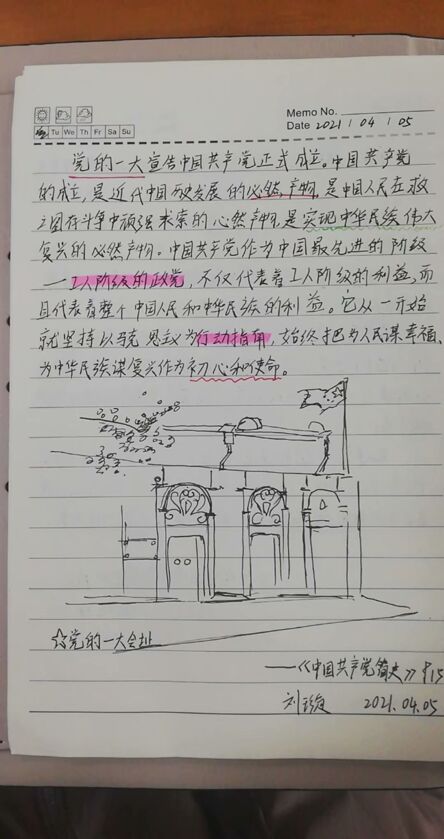 Memo No.
Mo Tu We Th Fr Sa Su
Date 2021 / 04 / 05
党的一大宣告中国共产党正式成立。中国共产党
的成立,是近代中国历史发展的必然产物,是中国人民在救
亡图存斗争中顽强求索的必然产物,是实现中华民族伟大
复兴的必然产物。中国共产党作为中国最先进的阶级
—工人阶级的政党,不仅代表着工人阶级的利益,而
且代表着整个中国人民和中华民族的利益。它从一开始
就坚持以马克思主义为行动指南,始终把为人民谋幸福、
为中华民族谋复兴作为初心和使命。
☆党的一大会址
——《中国共产党简史》P15
刘
2021.04.05